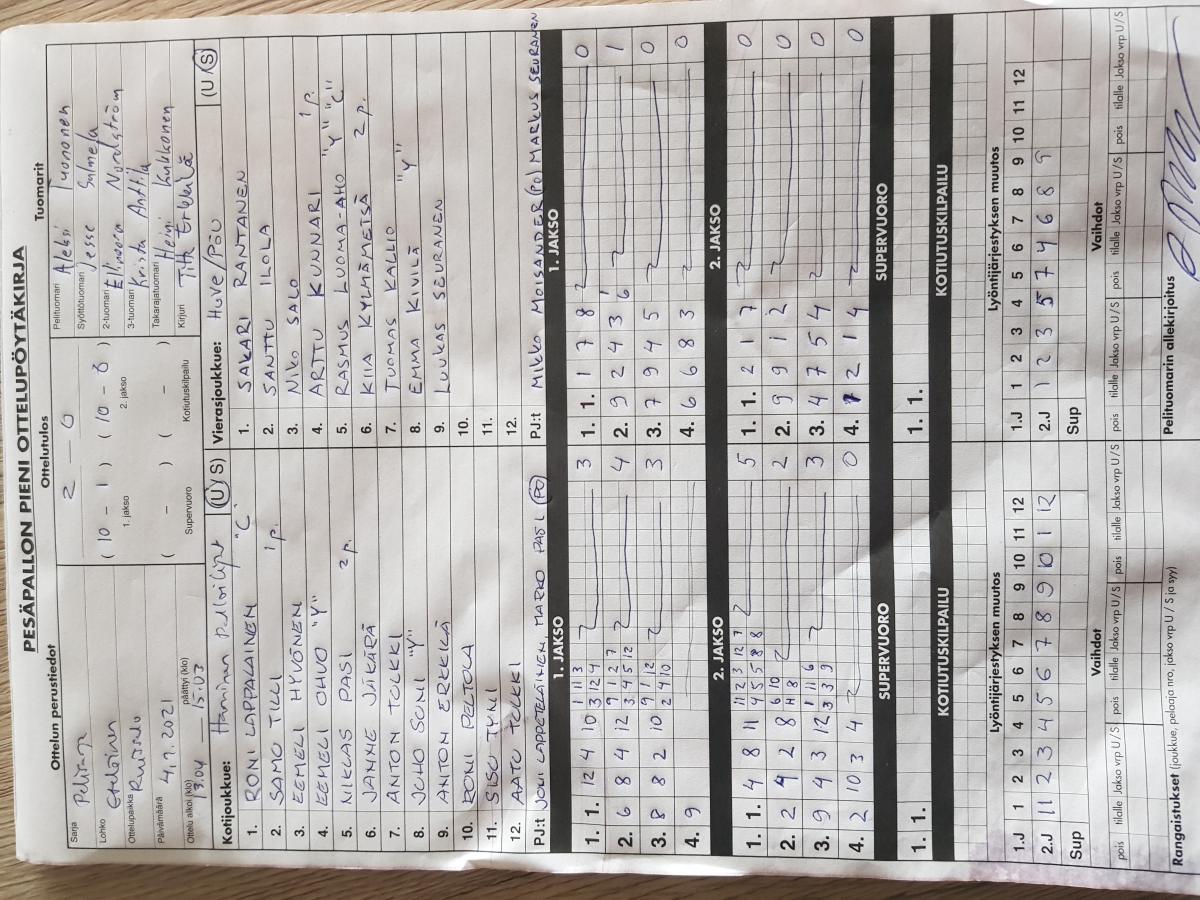 PESÄPALLON PIENI OTTELUPÖYTÄKIRJA
Ottelun perustiedot
Sarja Pelitarja
Lohko Eteläinen
Ottelupaikka Ruissalo
Päivämäärä 4.9.2021
Ottelu alkoi (klo) 13.04 päättyi (klo) 15:03
Ottelutulos
2 – 0
( 10 – 1 ) ( 10 – 0 )
1. jakso 2. jakso
( – ) ( – )
Supervuoro Kotiutuskilpailu
Tuomarit
Pelituomari Aleksi Tuononen
Syöttötuomari Jesse Salmela
2-tuomari Elinoora Nordström
3-tuomari Krista Anttila
Takarajatuomari Heini Kukkonen
Kirjuri Titta Erkkilä
Kotijoukkue: Haminan Palloilijat (U/S)
1. RONI LAPPALAINEN "C"
2. SAMO TILLI 1 p.
3. EEMELI HYVÖNEN
4. EEMELI OHVO "Y"
5. NIKLAS PASI 2 p.
6. JANNE JÄKÄRÄ
7. ANTON TOLKKI
8. JUHO SONI "Y"
9. ANTON ERKKILÄ
10. RONI PELTOLA
11. SISU TYNI
12. AATU TOLKKI
PJ:t JONI LAPPETELÄINEN, MARKO PASI (PO)
Vierasjoukkue: HuVe/PöU (U/S)
1. SAKARI RANTANEN
2. SANTTU ILOLA
3. NIKO SALO
4. ARTTU KUNNARI 1 p.
5. RASMUS LUOMA-AHO "Y" "C"
6. KIIA KYLMÄMETSÄ 2 p.
7. TUOMAS KALLIO "Y"
8. EMMA KIVILÄ
9. LUUKAS SEURANEN
10.
11.
12.
PJ:t MIKKO MOISANDER (PO) MARKUS SEURANEN
1. JAKSO 1. JAKSO
1. 1. 12 4 10 1 11 3 3 12 4 3 1. 1. 1 7 8 0
2. 6 8 4 12 9 1 2 7 3 4 5 12 4 2. 9 2 4 3 6 1
3. 8 8 2 10 9 1 12 2 4 10 3 3. 7 9 4 5 0
4. 9 4. 6 6 8 3 0
2. JAKSO 2. JAKSO
1. 1. 4 8 11 11 2 3 12 7 4 5 5 8 8 5 1. 1. 2 1 7 0
2. 2 4 2 8 6 10 4 8 2 2. 9 9 1 2 0
3. 9 4 3 12 1 11 6 3 3 9 3 3. 4 7 5 4 0
4. 2 10 3 4 0 4. 1 2 1 4 0
SUPERVUORO SUPERVUORO
1. 1. 1. 1.
KOTIUTUSKILPAILU KOTIUTUSKILPAILU
Lyöntijärjestyksen muutos Lyöntijärjestyksen muutos
1.J 1 2 3 4 5 6 7 8 9 10 11 12 1.J 1 2 3 4 5 6 7 8 9 10 11 12
2.J 11 2 3 4 5 6 7 8 9 10 1 12 2.J 1 2 3 5 7 4 6 8 9
Sup Sup
Vaihdot Vaihdot
pois tilalle Jakso vrp U / S pois tilalle Jakso vrp U / S pois tilalle Jakso vrp U / S pois tilalle Jakso vrp U / S pois tilalle Jakso vrp U / S pois tilalle Jakso vrp U / S
Rangaistukset (joukkue, pelaaja nro, jakso vrp U / S ja syy) Pelituomarin allekirjoitus